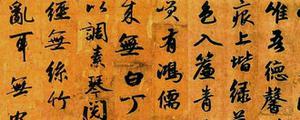 惟吾德馨
痕上堦緑
色入簾青
笑有鴻儒
来無白丁
以調素琴閱
經無絲竹
亂耳無